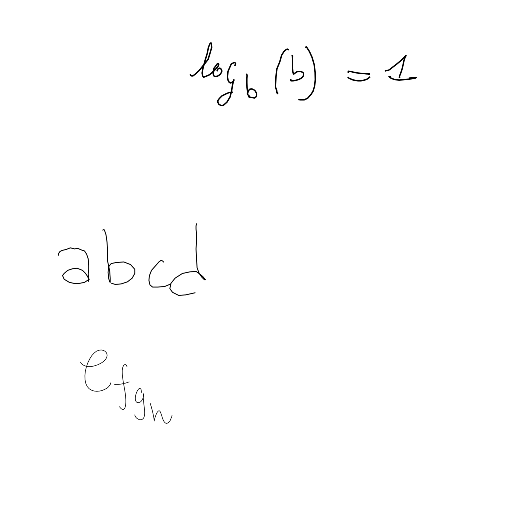 log_b(b) = 1
abcd
efgh